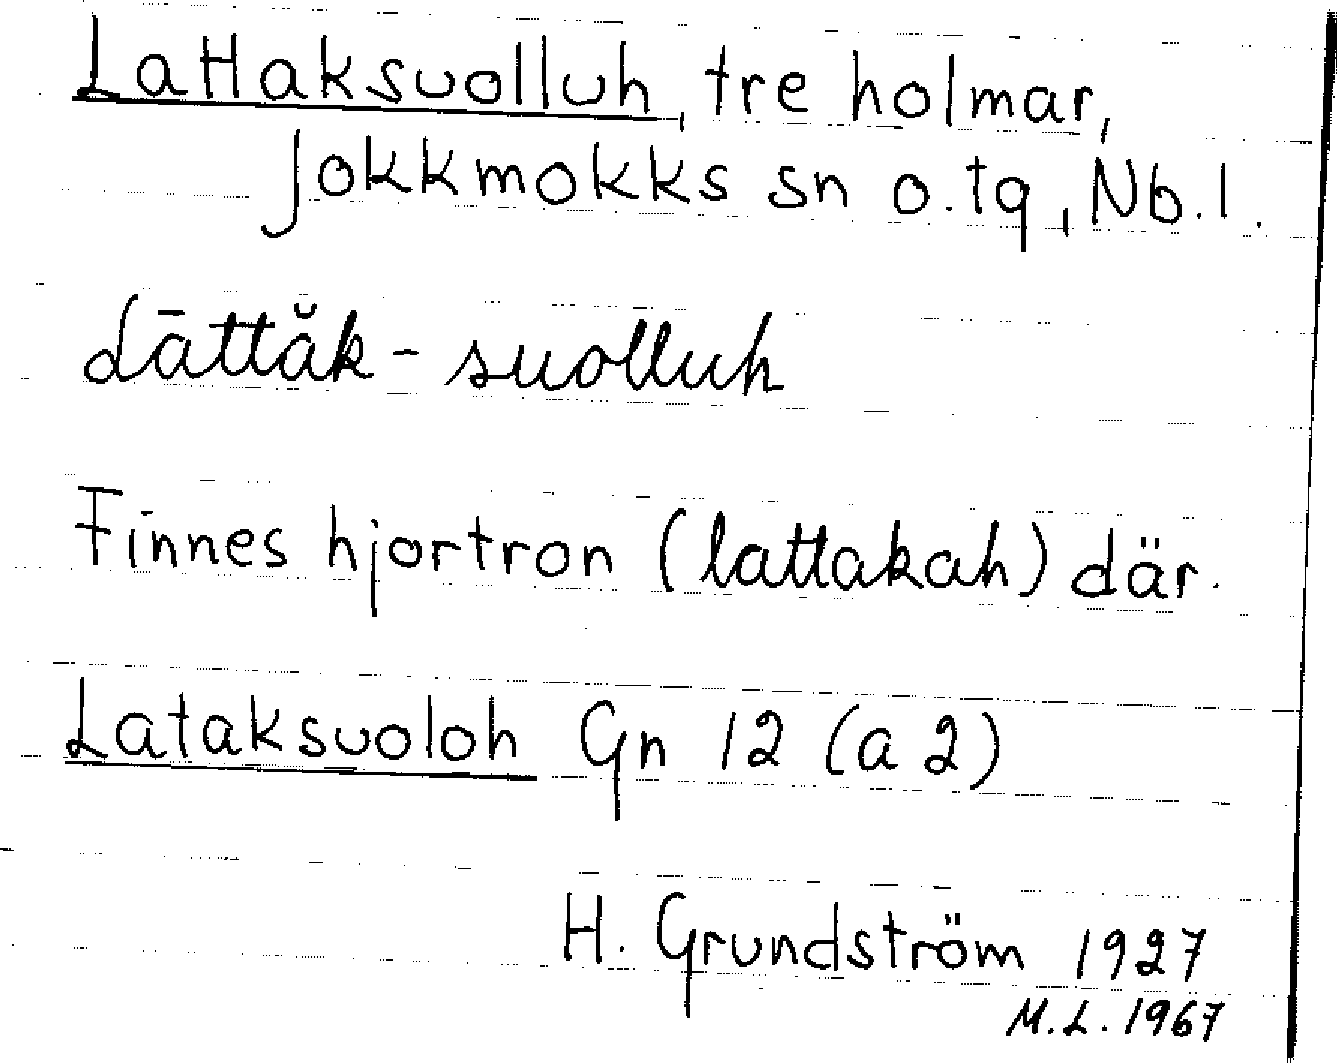 Lattaksuolluh, tre holmar,
Jokkmokks sn o. tg, Nb. l.
lāttăk-suolluh
Finnes hjortron (lattakah) där.
Lataksuoloh Gn 12 (a 2)
H. Grundström 1927
M.L. 1967